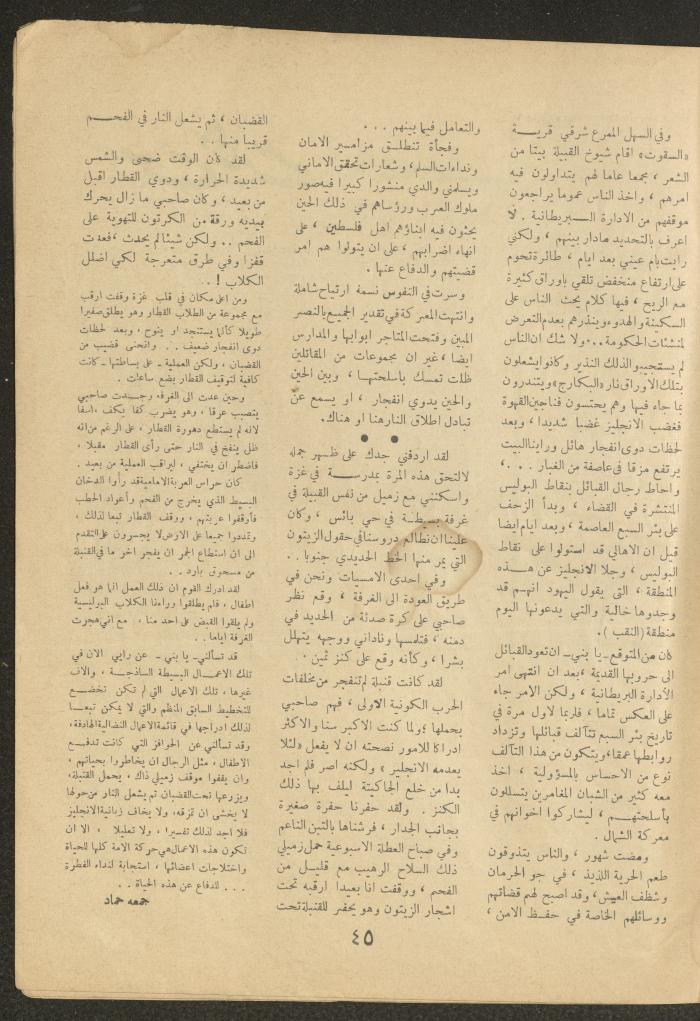 وفي السهل الممرع شرقي قريـــة
«السقوت» اقام شيوخ القبيلة بيتا من
الشعر ، بجمعا عاما لهم يتداولون فيه
امرهم ، واخذ الناس عموما يراجعون
موقفهم من الادارة الــبريطانية . لا
اعرف بالتحديد مادار بينهم ، ولكني
رايت بام عيني بعد ايام ، طائرة تحوم
على ارتفاع منخفض تلقي باوراق كثيرة
مع الريح ، فيها كلام يحث الناس على
السكينة والهدوء وينذرهم بعدم التعرض
لمنشئات الحكومة...ولا شك ان الناس
لم يستجيبوا لذلك النذير وكانوا يشعلون
بتلك الاوراق نار «البكارج» ويتندرون
بما جاء فيها وهم يحتسون فناجين القهوة
فغضب الانجليز غضبا شديدا ، وبعد
لحظات دوى انفجار هائل وراينا البيت
يرتفع مزقا في عاصفة من الغبار . . . ،
واحاط رجال القبائل بنقاط البوليس
المنتشرة في القضاء ، وبدأ الزحف
على بئر السبع العاصمة ، وبعد ايام ايضا
قيل ان الاهالي قد استولوا على نقاط
البوليس ، وجلا الانجليز عن هــــذه
المنطقة ، التي يقول اليهود انهـــم قد
وجدوها خالية والتي يدعونها اليوم
منطقة (النقب ) .
كان من المتوقع ـ يا بني ـ ان تعود القبائل
الى حروبها القديمة ، بعد ان انتهى امر
الأدارة البريطانية ، ولكن الامر جاء
على العكس تماما ، فلربما لاول مرة في
تاريخ بئر السبع تتآلف قبائلها وتزداد
روابطها عمقا ، ويتكون من هذا التآلف
نوع من الاحساس بالمسؤولية ، اخذ
معه كثير من الشبان المغامرين يتسللون
بأسلحتهم ، ليشاركوا اخوانهم في
معركة الشمال .
ومضت شهور ، والناس يتذوقون
طعم الحرية اللذيذ ، في جو الحرمان
وشظف العيش ، وقد اصبح لهم قضاتهم
ووسائلهم الخاصة في حفـــظ الامن ،
والتعامل فيما بينهم . . .
وفجأة تنطلـــق مزامـــير الامان
ونداءات السلم ، وشعارات تحقق الاماني
ويسلمني والدي منشورا كبيرا فيه صور
ملوك العرب ورؤساهم في ذلك الحين
يحثون فيه ابناؤهم اهل فلسطين ، على
انهاء اضرابهم ، على ان يتولوا هم امر
قضيتهم والدفاع عنها .
وسرت في النفوس نسمة ارتياح شاملة
وانتهت المعركة في تقدير الجميع بالنصر
المبين وفتحت المتاجر ابوابها والمدارس
ايضا ، غير ان مجموعات من المقاتلين
ظلت تمسك بأسلحتهـا ، وبين الحين
والحين يدوي انفجار ، او يسمع عن
تبادل اطلاق النار هنا او هناك .
● ●
لقد اردفني جدك على ظهـــر جمله
لالتحق هذه المرة بمدرســــة في غزة
واسكنني مع زميل من نفس القبيلة في
غرفة بسيطـة في حي بائس ، وكان
علينا ان نطالع دروسنا في حقول الزيتون
التي يمر منها الخط الحديدي جنوبا . .
وفي احدى الامسيات ونحن في
طريق العودة الى الغرفة ، وقع نظر
صاحبي على كرة صدئة من الحديد في
دمنه ، فتلمسها وناداني ووجهه يتهلل
بشرا ، وكأنه وقع على كنز ثمين .
لقد كانت قنبلة لم تنفجر من مخلفات
الحرب الكونية الاولى ، فهم صاحبي
يحملها ؛ ولما كنت الاكبر سنا والاكثر
ادراكا للامور نصحته ان لا يفعل «لئلا
يعدمه الانجليز » ولكنه اصر فلم اجد
بدا من خلع الجاكيتة ليلف بها ذلك
الكنز . ولقد حفرنا حفرة صغيرة
بجانب الجدار ، فرشناها بالتبن الناعم
وفي صباح العطلة الاسبوعية حمل زميلي
ذلك السلاح الرهيب مع قليـــل من
الفحم ، ووقفت انا بعيدا ارقبه تحت
اشجار الزيتون وهو يحفر للقنبلة تحت
القضبان ، ثم يشعل النار في الفحـــم
قريبا منها . .
لقد كان الوقت ضحى والشمس
شديدة الحرارة ، ودوي القطار اقبل
من بعيد ، وكان صاحبي ما زال يحرك
بيديه ورقة من الكرتون للتهوية على
الفحم . . ولكن شيئا لم يحدث ، فعدت
قفزا وفي طرق متعرجة لكي اضلل
الكلاب ! . .
ومن اعلى مكان في قلب غزة وقفت ارقب
مع مجموعة من الطلاب القطار وهو يطلق صفيرا
طويلا كأنما يستنجد او ينوح ، وبعد لحظات
دوى انفجار ضعيف . . وانحنى قضيب من
القضبان ، ولكن العملية ـ على بساطتها ـ كانت
كافية لتوقيف القطار بضع ساعات .
وحين عدت الى الغرفه وجـــدت صاحبي
يتصبب عرقا ، وهو يضرب كفا بكف ، اسفا
لانه لم يستطع دهورة القطار ، على الرغم من انه
ظل ينفخ في النار حتى رأى القطار مقبلا ،
فاضطر ان يختفي ، ليراقب العملية من بعيد .
كان حراس العربة الامامية قد رأوا الدخان
البسيط الذي يخرج من الفحم وأعواد الحطب
فأوقفوا عربتهم ، ووقف القطار تبعا لذلك ،
وتمددوا جميعا على الارض لا يجسرون على التقدم
الى ان استطاع الجمر ان يفجر اخر ما في القنبلة
من مسحوق بارد . .
لقد ادرك القوم ان ذلك العمل انما هو فعل
اطفال ، فلم يطلقوا وراءنا الكلاب البوليسية
ولم يلقوا القبض على احد منا ، مع اني هجرت
الغرفة اياما . .
قد تسألني ـ يا بني ـ عن رايي الان في
تلك الاعمـــال البسيطة الساذجـــة ، والاف
غيرها ، تلك الاعمال التي لم تكن تخضـــع
للتخطيط السابق المنظم والتي لا يمكن تبعــا
لذلك ادراجها في قائمة الاعمال النضالية الهادفة ،
وقد تسألني عن الحوافز التي كانت تدفـــع
الاطفال ، مثل الرجال ان يخاطروا بحياتهم ،
وان يقفوا موقف زميلي ذاك ، يحمل القنبلة ،
ويزرعها تحت القضبان ثم يشعل النار من حولها
لا يخشى ان تمزقه ، ولا يخاف زبانية الانجليز
فلا اجد لذلك تفسيرا ، ولا تعليلا ، الا ان
تكون هذه الاعمال هي حركة الامة كلها للحياة
واختلاجات اعضائها ، استجابة لنداء الفطرة
. . . للدفاع عن هذه الحياة . .
جمعه حماد
٤٥